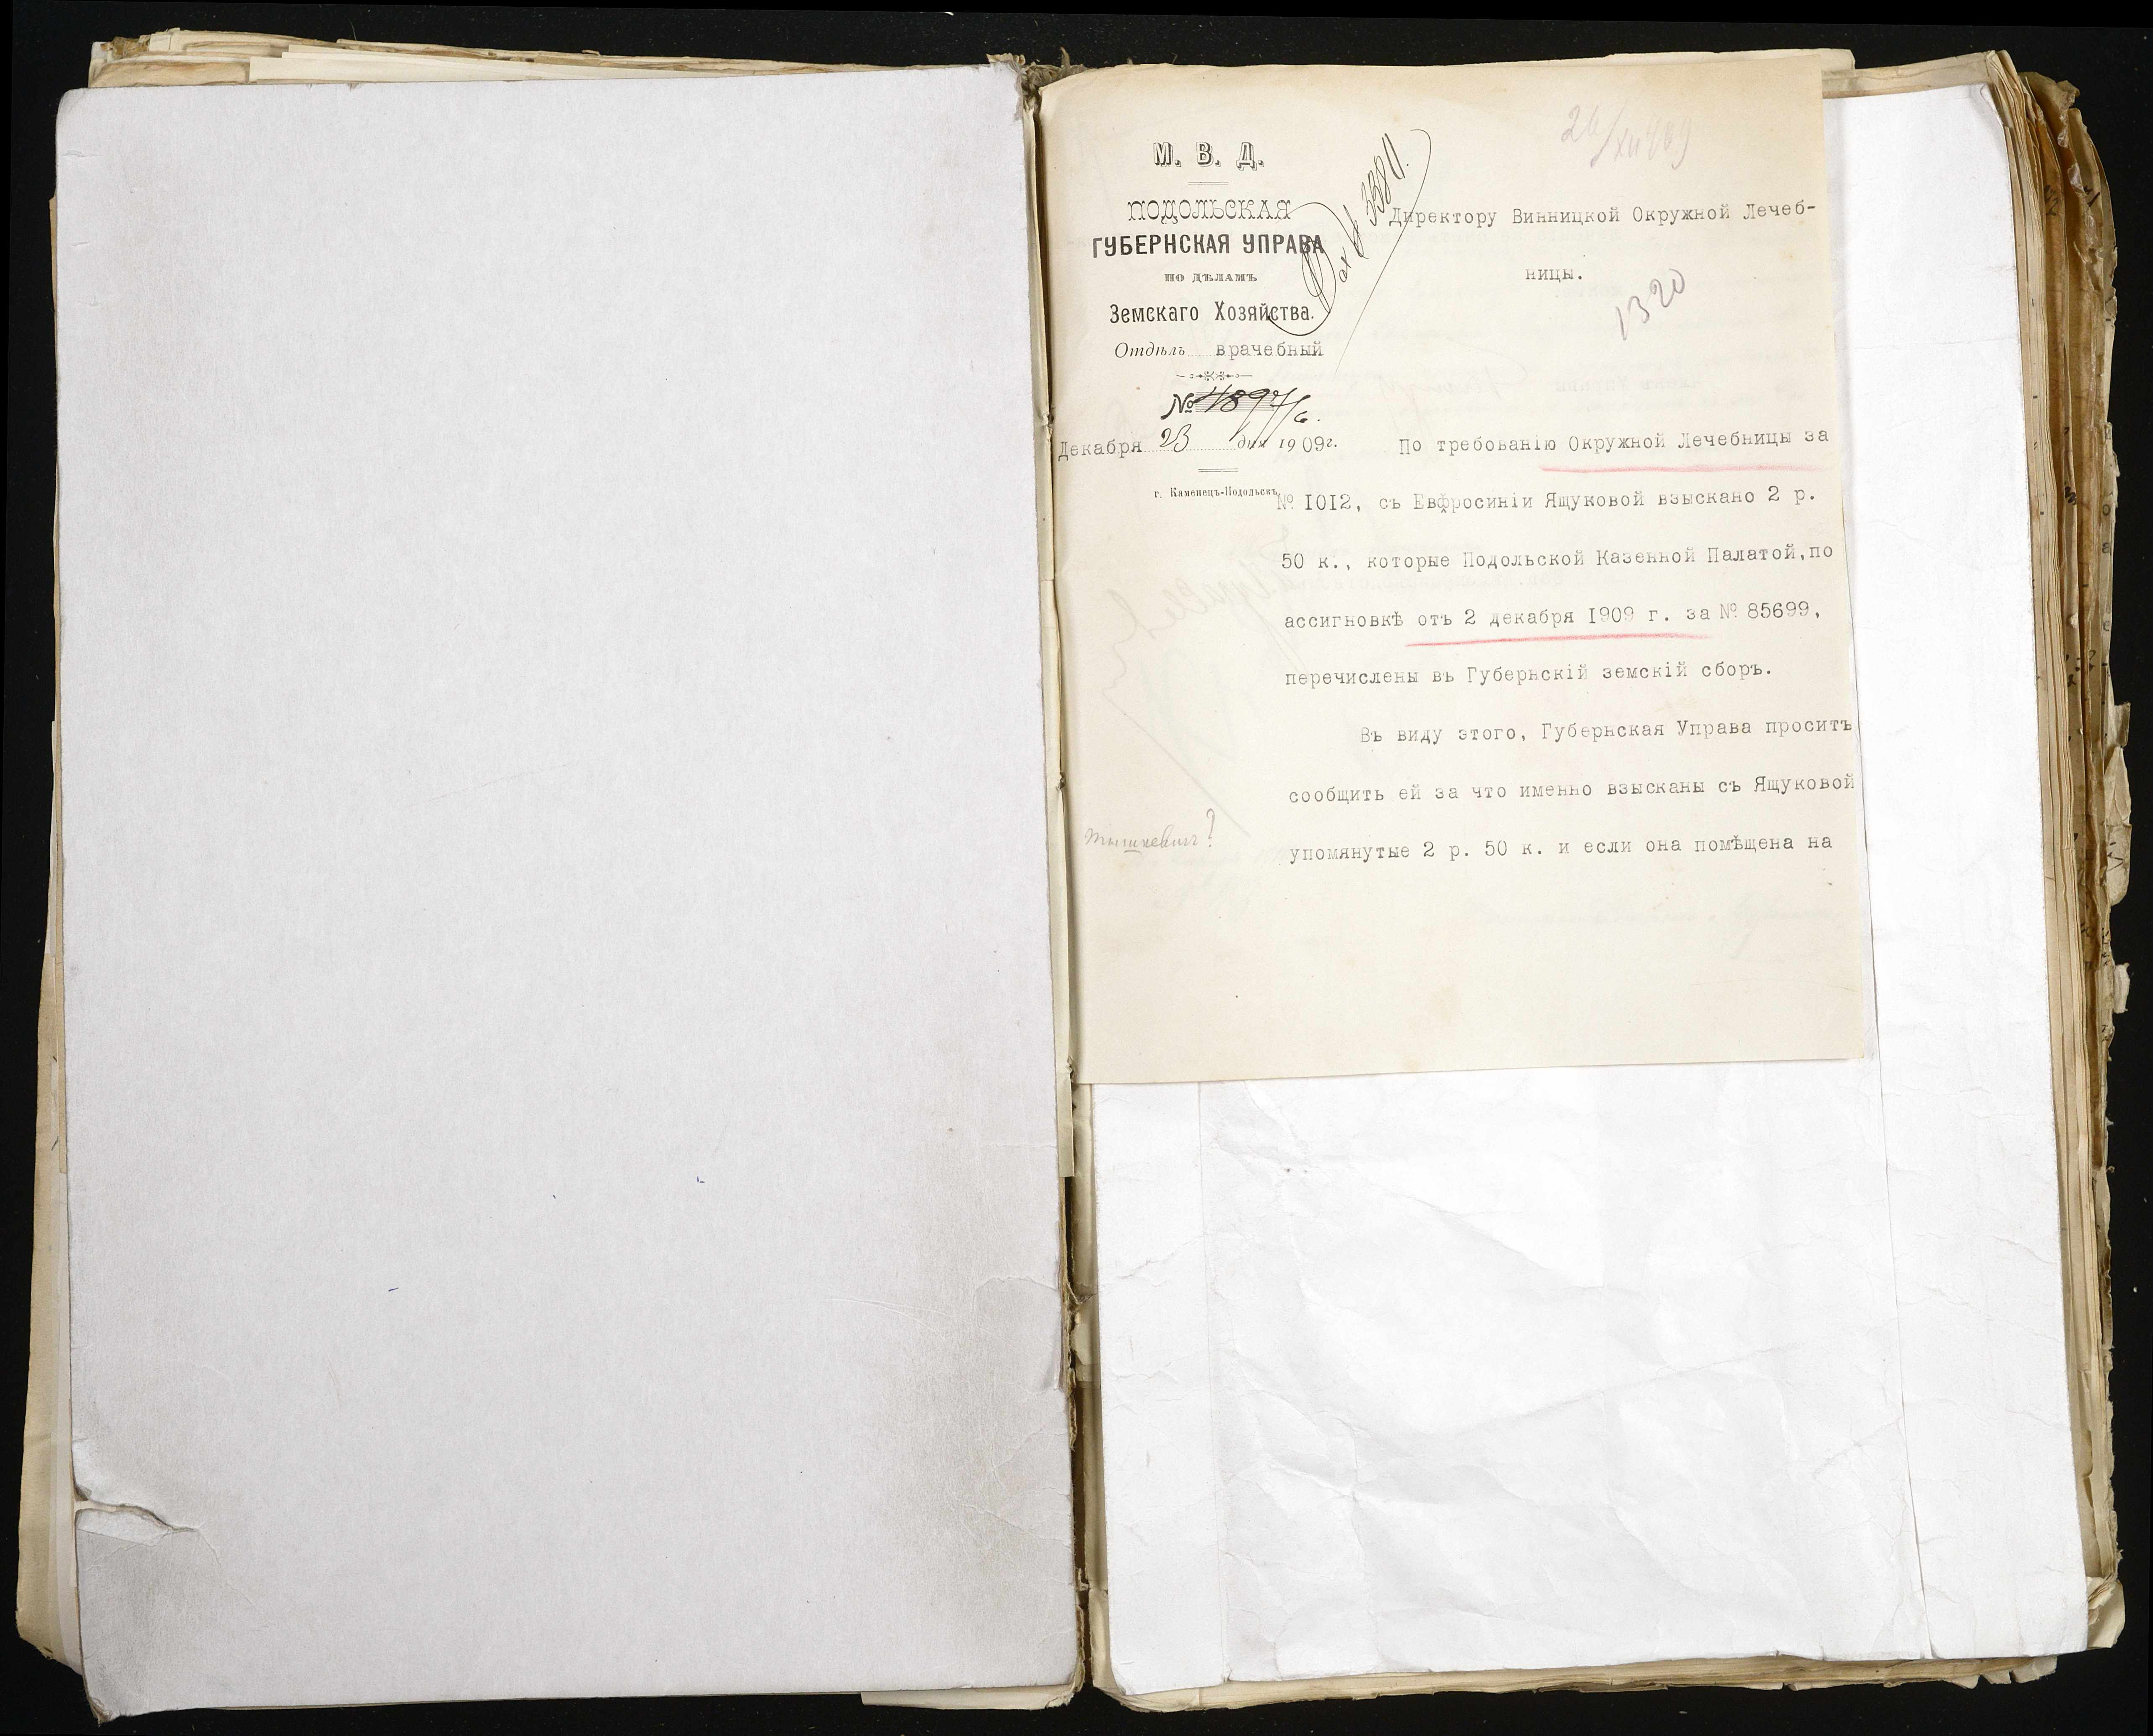 М. В. Д.
ПОДОЛЬСКАЯ
ГУБЕРНСКАЯ УПРАВА
ПО ДѢЛАМЪ
Земскаго Хозяйства.
Отдѣлъ врачебный
№ 4897/6.
Декабря 23 дня 1909г.
г. Каменецъ-Подольскъ
Вх № 3380.
26/XII 909
Директору Винницкой Окружной Лечеб-
ницы.
1320
По требованію Окружной Лечебницы за
№ 1012, съ Евфросиніи Ящуковой взыскано 2 р.
50 к., которые Подольской Казенной Палатой, по
ассигновкѣ отъ 2 декабря 1909 г. за № 85699,
перечислены въ Губернскій земскій сборъ.
Въ виду этого, Губернская Управа проситъ
сообщить ей за что именно взысканы съ Ящуковой
упомянутые 2 р. 50 к. и если она помѣщена на